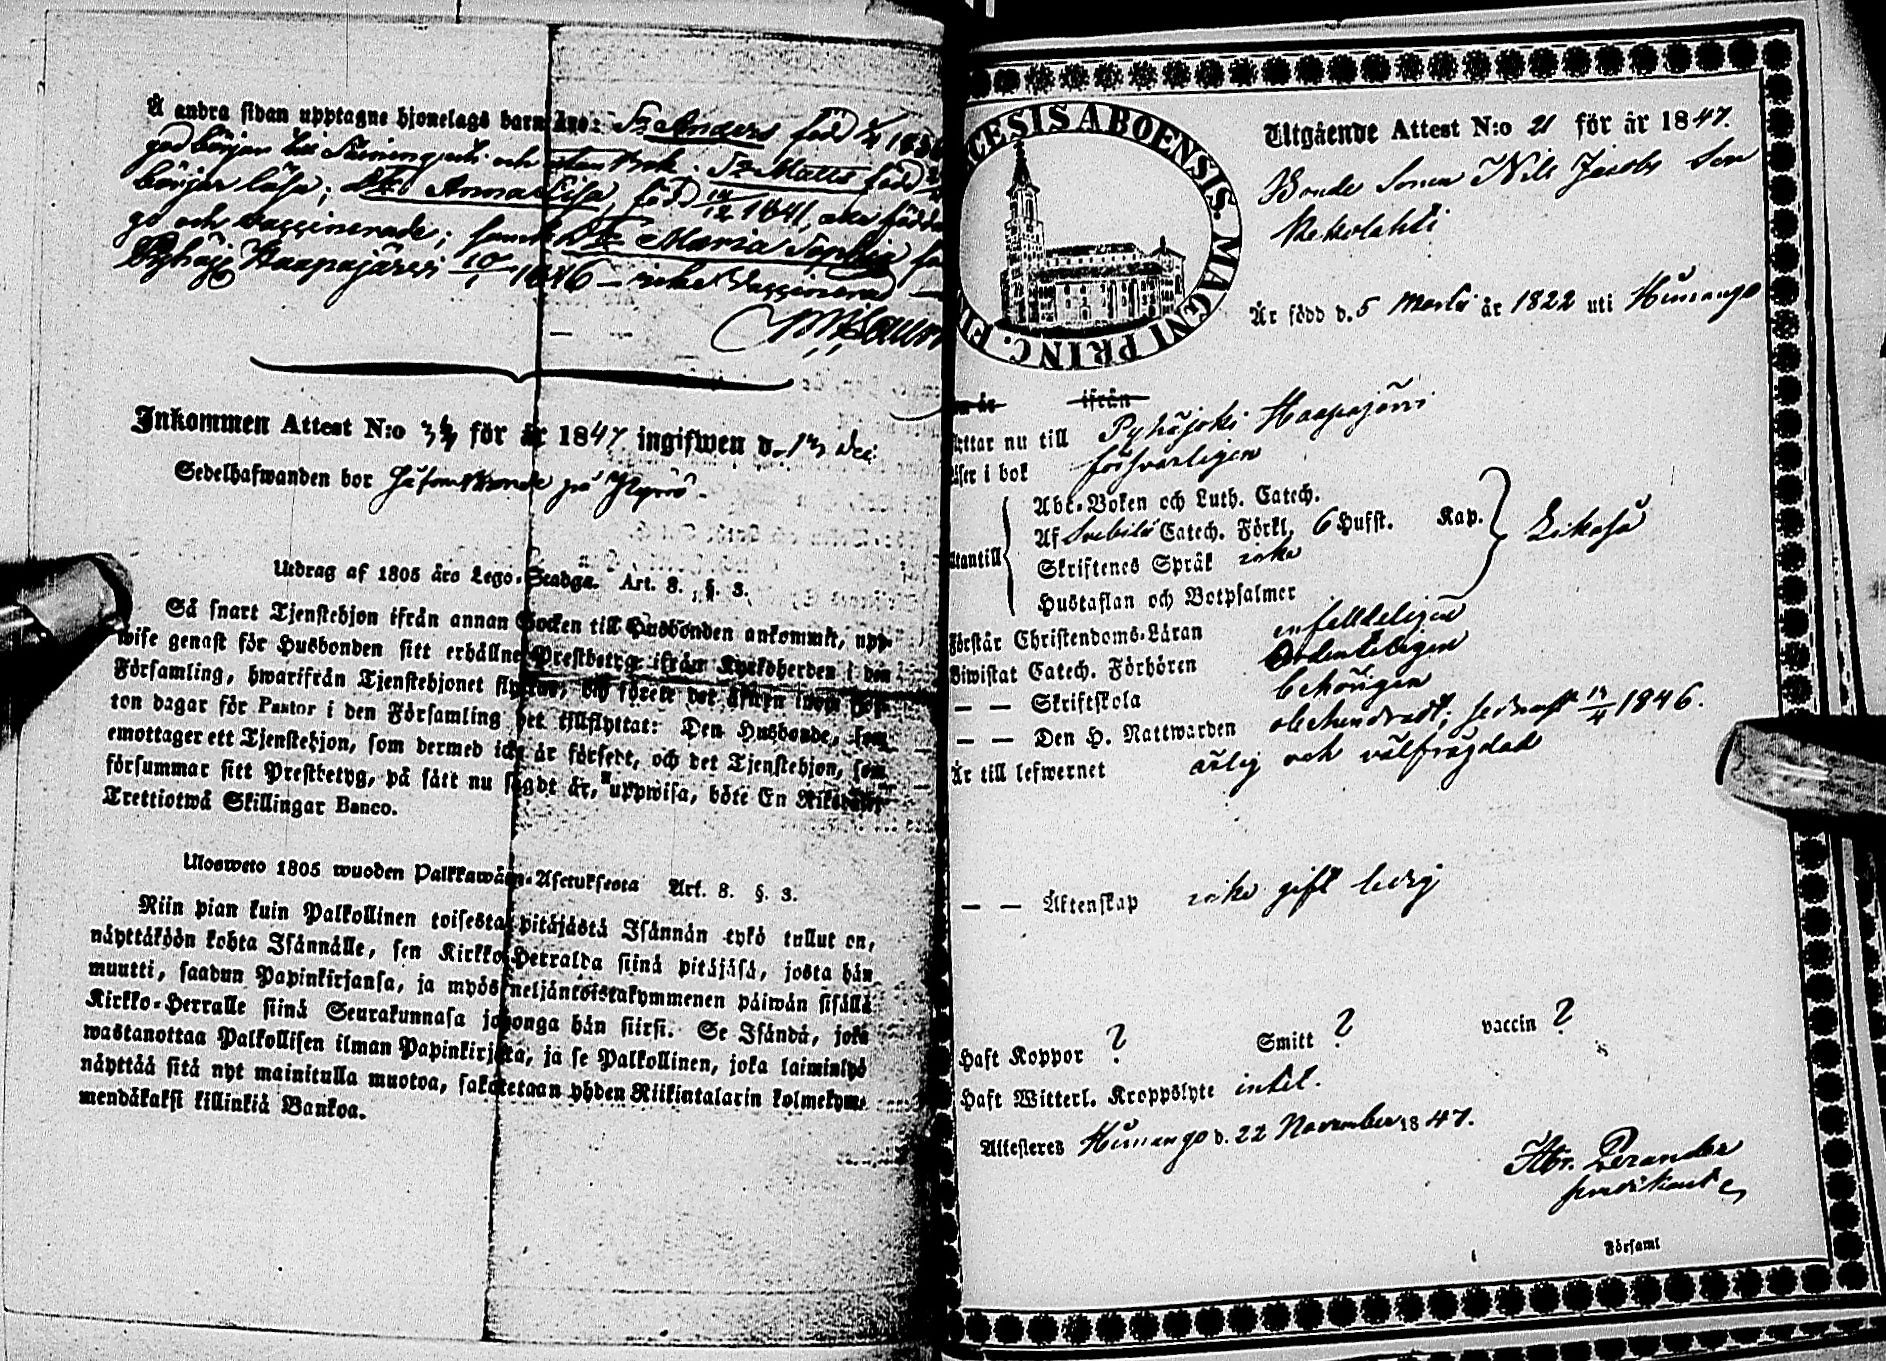 Å andra sidan upptagne hjonelags barn äro: Sn Anders född 1/4
god början till Läsning och
början läsa; Dtr Anna Lisa, född 19/12 1841, alla födda
go och vaccinerade; samt Dtr Maria Sophia
Pyhäj: Haapajärvi 10/1 1846 – icke Vaccinerad –
Inkommen Attest N:o för år 1847 ingifwen d. 13 Dec:
Sedelhafwanden bor på
Utdrag af 1805 års Lego-Stadga. Art. 8. §. 3.
Så snart Tjenstehjon ifrån annan Socken till Husbonden ankommit, upp-
wise genast för Husbonden sitt erhållne Prestbetyg ifrån Kyrkoherden i den
Församling, hwarifrån Tjenstehjonet flyttat, och förete det äfwen inom fjor-
ton dagar för Pastor i den Församling det tillflyttat: Den Husbonde, som
emottager ett Tjenstehjon, som dermed icke är försedt, och det Tjenstehjon, som
försummar sitt Prestbetyg, på sätt nu sagdt är, uppwisa, böte En Riksdaler
Trettiotwå Skillingar Banco.
Ulosweto 1805 wuoden Palkkawäen-Asetuksesta Art. 8. §. 3.
Niin pian kuin Palkollinen toisesta pitäjästä Isännän tykö tullut on,
näyttäköön kohta Isännälle, sen Kirkko-Herralda siinä pitäjäsä, josta hän
muutti, saadun Papinkirjansa, ja myös neljäntoistakymmenen päiwän sisällä
Kirkko-Herralle siinä Seurakunnasa johonga hän siirsi. Se Isändä, joka
wastanottaa Palkollisen ilman Papinkirjata, ja se Palkollinen, joka laiminlyö
näyttää sitä nyt mainitulla muotoa, sakotetaan yhden Riikintalarin kolmekym-
mendäkaksi killinkiä Bankoa.
CESIS ABOENSIS. MAGNI PRINC. FI
Utgående Attest N:o 21 för år 1847.
Bonde Sonen Nils Jacobs Son
Kekolahti
Är född d. 5 Martii år 1822 uti Himango
år ifrån
ttar nu till Pyhäjoki Haapajärvi
äser i bok försvarligen
utantill Abc-Boken och Luth. Catech.
Af Svebilii Catech. Förkl. 6 Hufst. Kap. Likaså
Skriftenes Språk icke
Hustaflan och Botpsalmer
Förstår Christendoms-Läran enfaldeligen
Biwistat Catech. Förhören Ordenteligen
— — Skriftskola behörigen
— — Den H. Nattwarden obehindradt, sednast 13/4 1846.
Är till lefwernet ärlig och välfrägdad
— — Äktenskap icke gift ledig
Haft Koppor ? Smitt ? vaccin ?
Haft Witterl. Kroppslyte intet.
Attesteres Himango d. 22 November 1847.
Abr. Perander
predikant
Församl